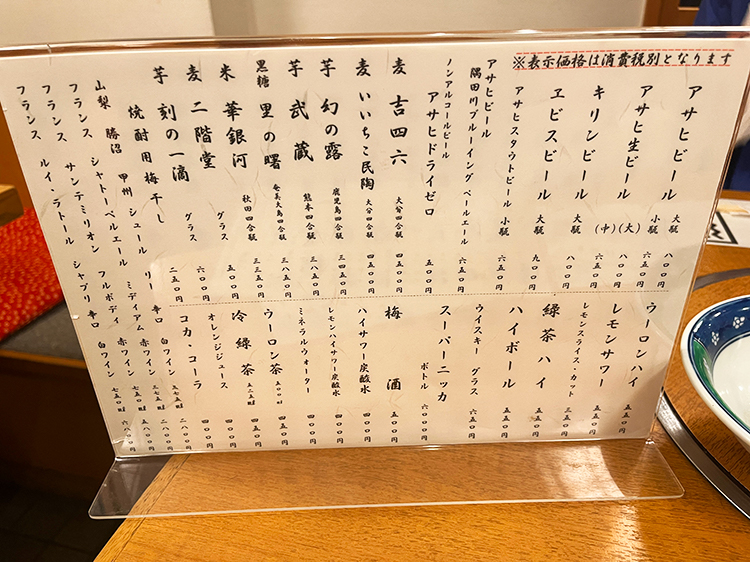 ※表示価格は消費税別となります
アサヒビール 大瓶 八〇〇円
小瓶
アサヒ生ビール (大) 八〇〇円
(中) 六五〇円
キリンビール 大瓶 八〇〇円
ヱビスビール 大瓶 九〇〇円
アサヒスタウトビール 小瓶 六五〇円
アサヒビール
隅田川ブルーイング ペールエール 六五〇円
ノンアルコールビール
アサヒドライゼロ 五〇〇円
麦 吉四六 大分四合瓶 四五〇〇円
麦 いいちこ民陶 大分四合瓶 四五〇〇円
芋 幻の露 鹿児島四合瓶 三四〇〇円
芋 武蔵 熊本四合瓶 三八五〇円
黒糖 里の曙 奄美大島四合瓶 三八五〇円
米 華銀河 秋田四合瓶 三三五〇円
麦 二階堂 グラス 五〇〇円
芋 刻の一滴 グラス 六〇〇円
焼酎用梅干し 二五〇円
ウーロンハイ 五五〇円
レモンサワー 五五〇円
レモンスライス・カット 三五〇円
緑茶ハイ 五五〇円
ハイボール 五五〇円
ウイスキー グラス
スーパーニッカ ボトル 六〇〇〇円
梅酒 五五〇円
ハイサワー炭酸水 四〇〇円
レモンハイサワー炭酸水 四〇〇円
ミネラルウォーター 四〇〇円
ウーロン茶 四〇〇円
冷緑茶 四〇〇円
オレンジジュース 四〇〇円
コカ・コーラ 四〇〇円
山梨 勝沼 甲州 シュール リー 辛口 白ワイン
フランス シャトーペルエール ミディアム 赤ワイン
フランス サンテミリオン フルボディ 赤ワイン
フランス ルイ・ラトール シャブリ 辛口 白ワイン